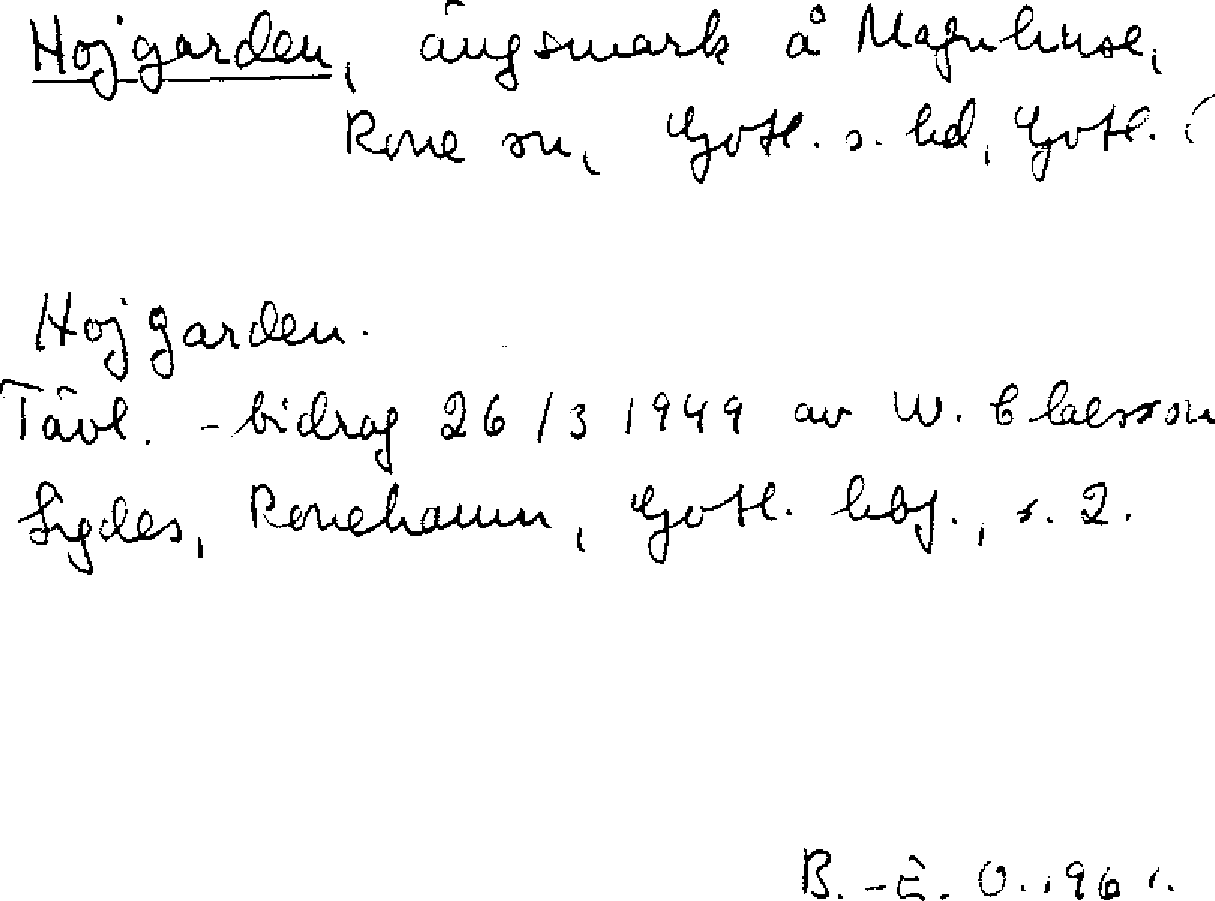 Hojgarden, ängsmark å Magnhuse,
Rone sn, Gotl. s. hd, Gotl. (
Hojgarden.
Tävl. -bidrag 26/3 1949 av W. Claesson
Sigdes, Ronehamn, Gotl. hbf., s. 2.
B. -E. O. 1961.